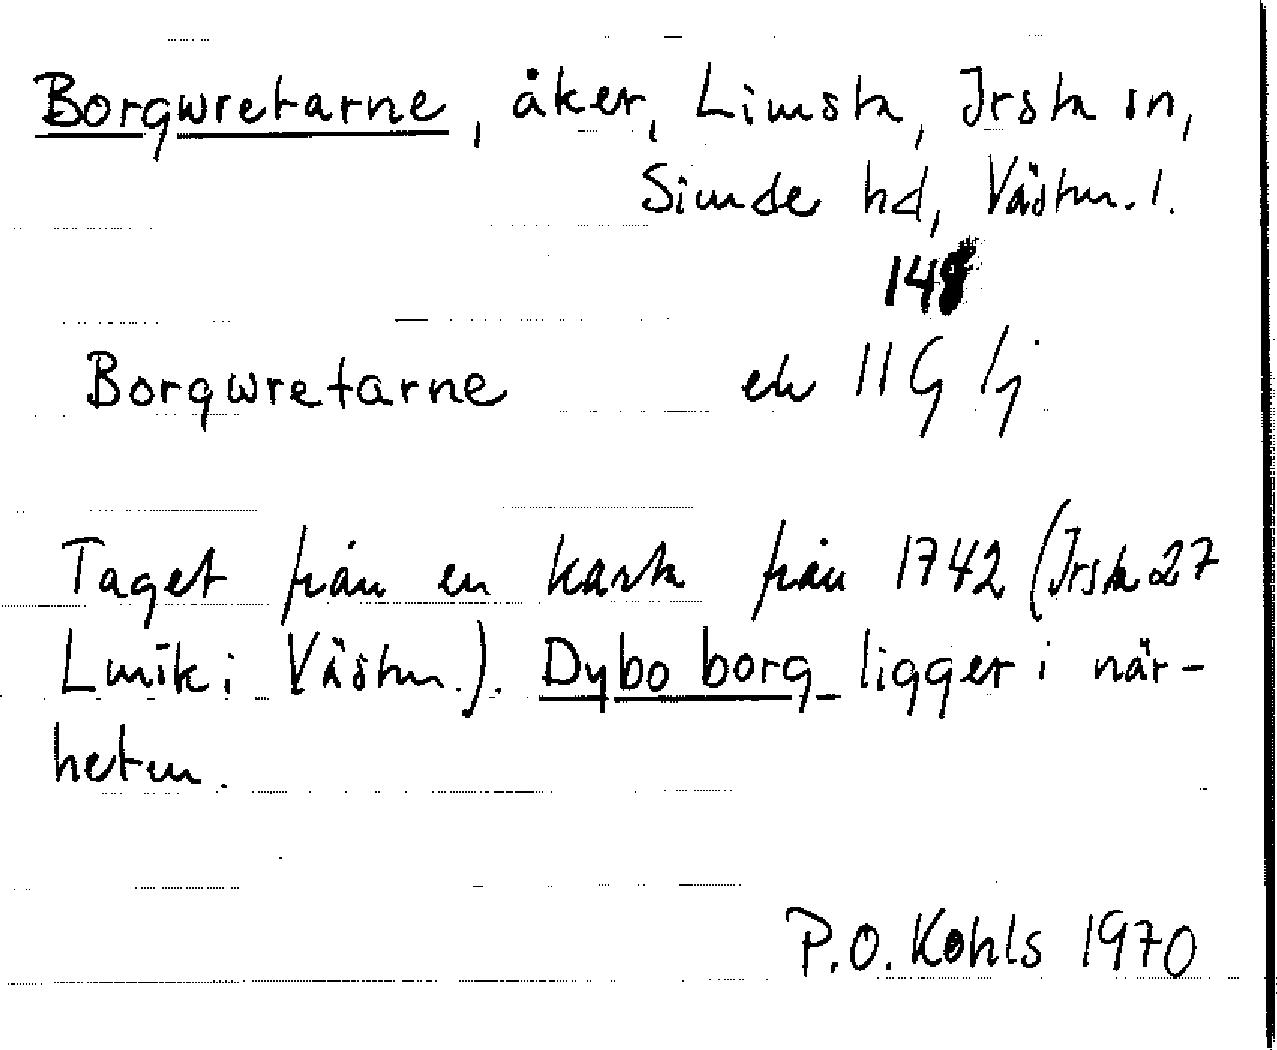 Borgwretarne, åker, Limsta, Irsta sn,
Siende hd, Västm. l.
148
Borgwretarne ek 11G
Taget från en karta från 1742 (Irsta 27
Lmk i Västm.). Dybo borg ligger i när-
heten.
P.O. Kohls 1970